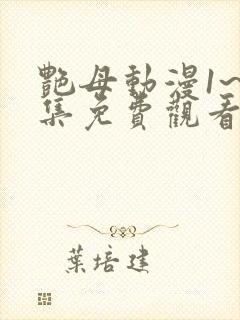 艷母動漫1~
集免費觀看
葉培建